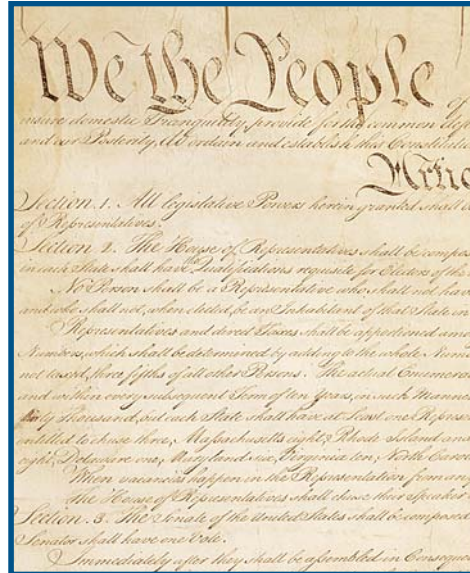 We the People of
insure domestic Tranquility, provide for the common def
and our Posterity, do ordain and establish this Constitutio
Artic
Section. 1. All legislative Powers herein granted shall be
of Representatives.
Section. 2. The House of Representatives shall be compos
in each State shall have the Qualifications requisite for Electors of the
No Person shall be a Representative who shall not hav
and who shall not, when elected, be an Inhabitant of that State in
Representatives and direct Taxes shall be apportioned amo
Numbers, which shall be determined by adding to the whole Num
not taxed, three fifths of all other Persons. The actual Enumerat
and within every subsequent Term of ten Years, in such Manne
thirty Thousand, but each State shall have at Least one Repres
entitled to chuse three, Massachusetts eight, Rhode Island and
eight, Delaware one, Maryland six, Virginia ten, North Caro
When vacancies happen in the Representation from an
the House of Representatives shall chuse their Speaker
Section. 3. The Senate of the United States shall be composed
Senator shall have one Vote.
Immediately after they shall be assembled in Conseque